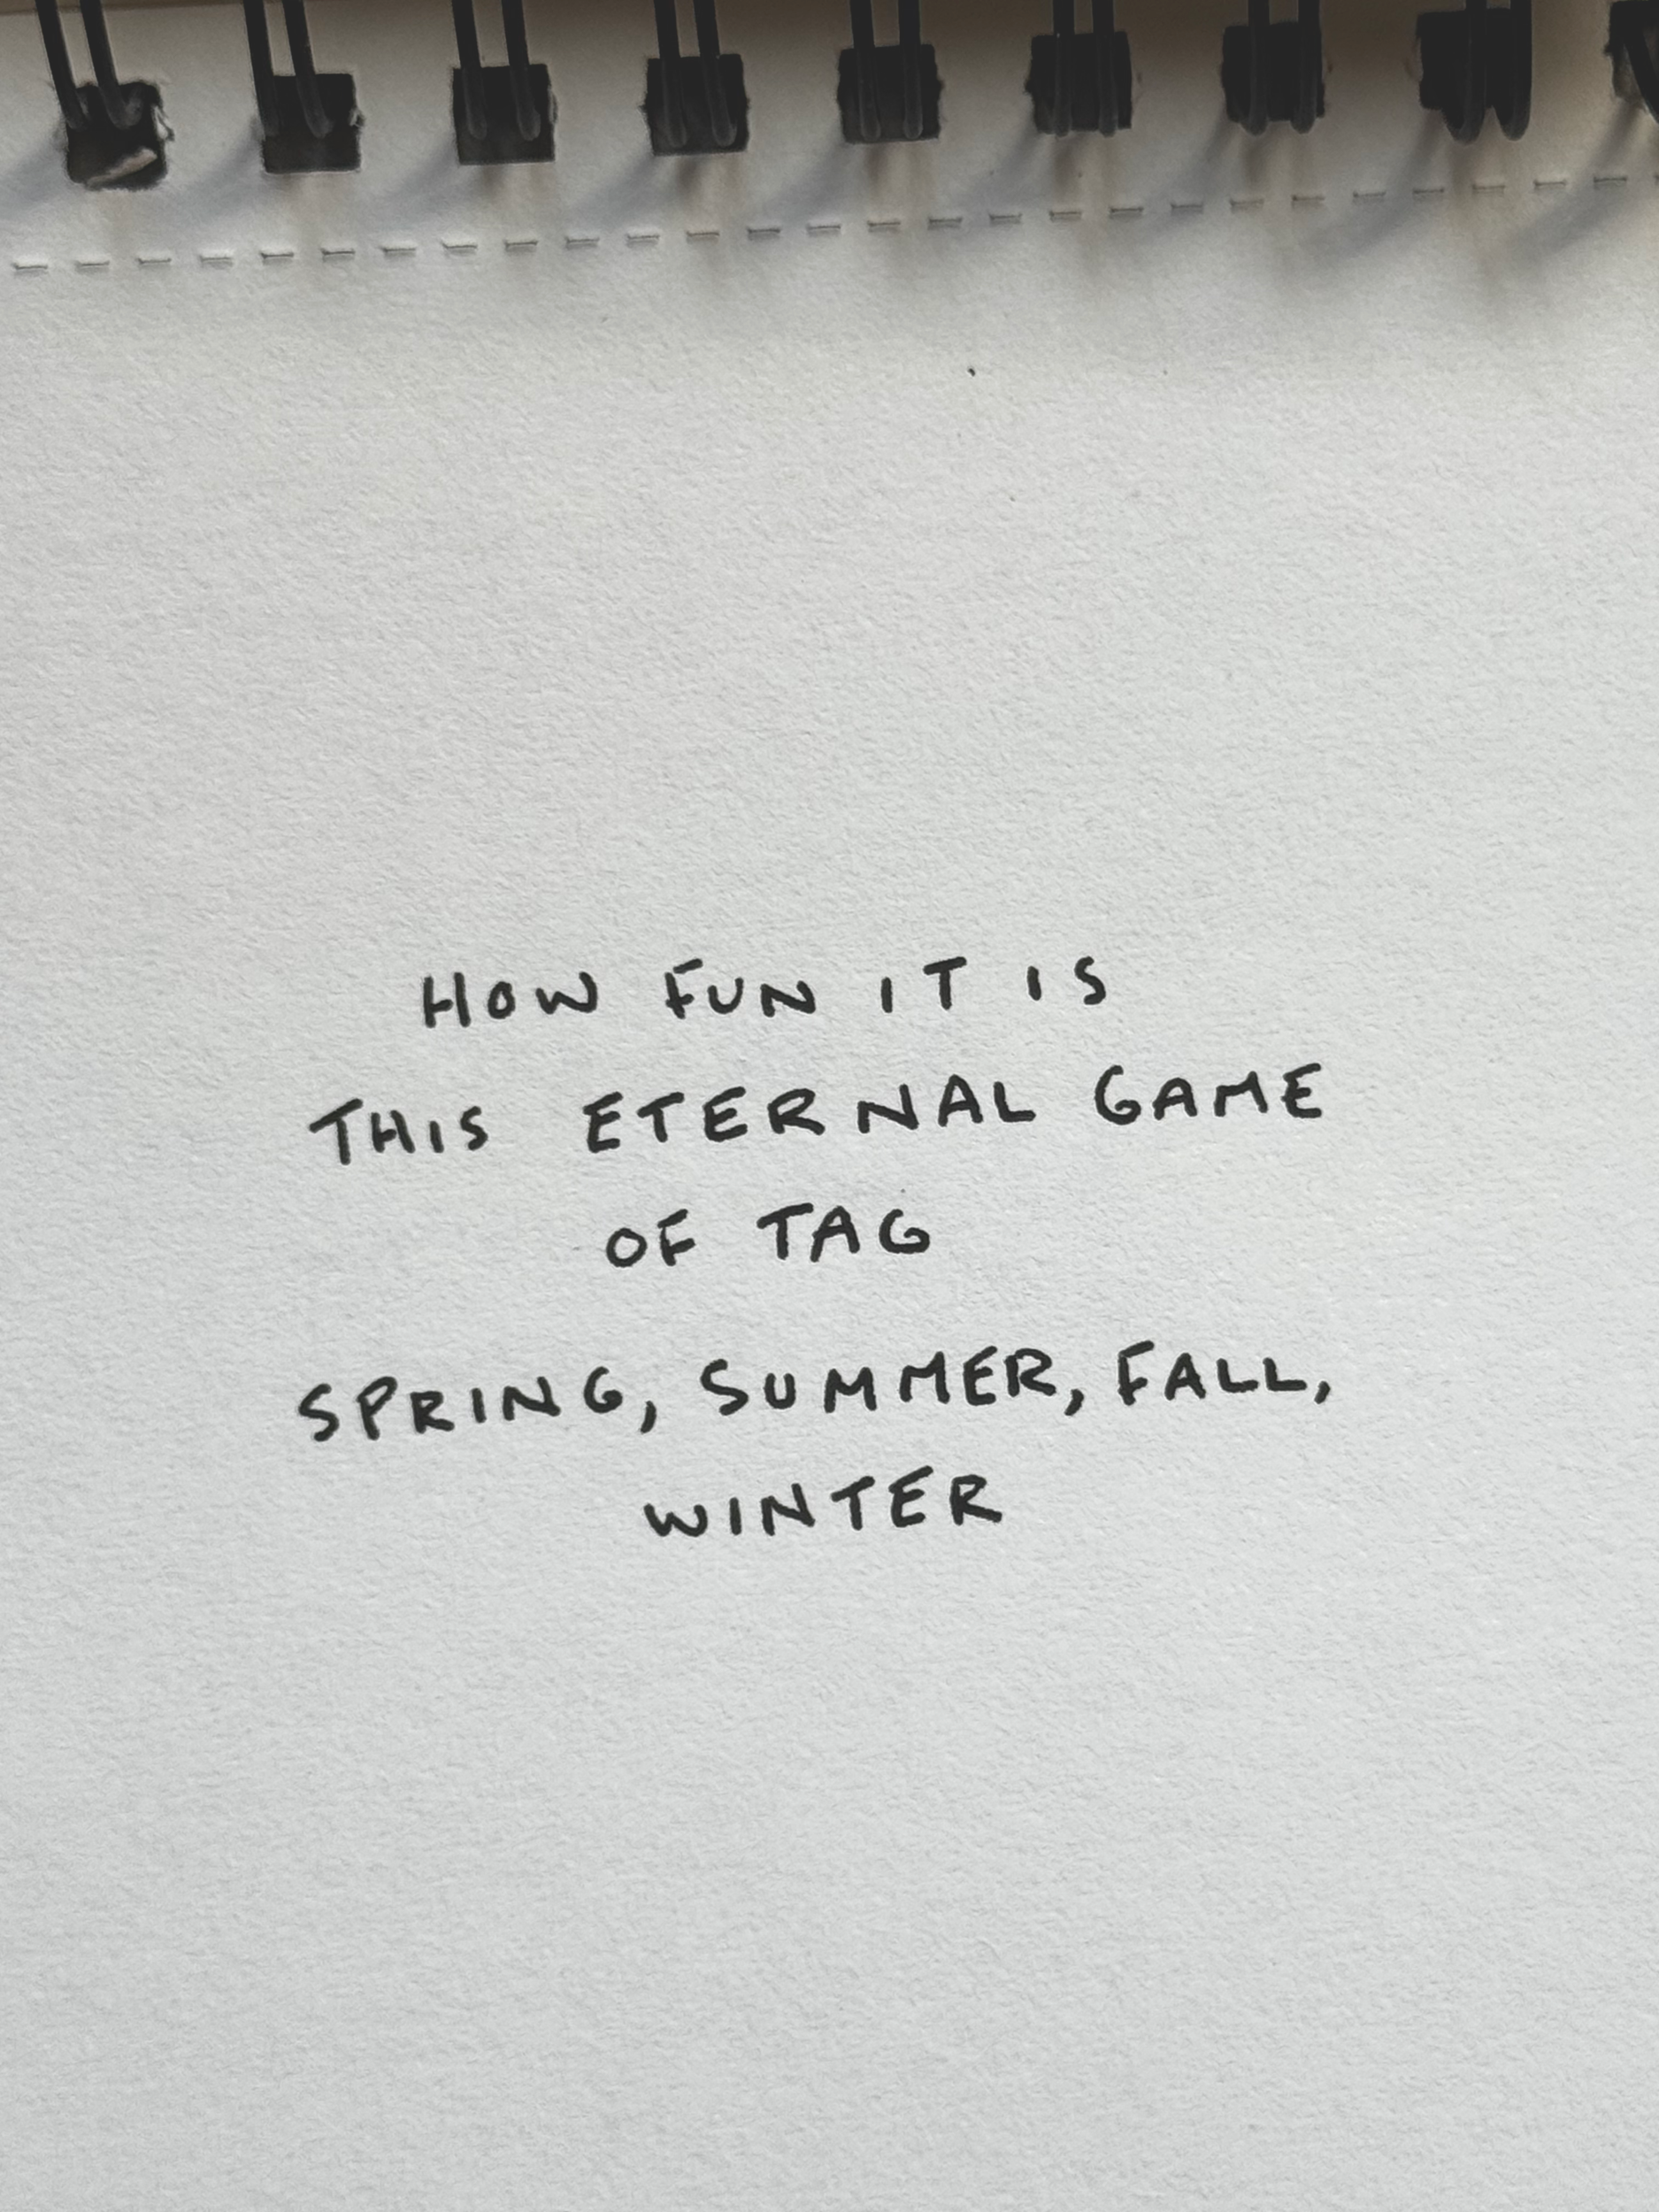 HOW FUN IT IS
THIS ETERNAL GAME
OF TAG
SPRING, SUMMER, FALL,
WINTER